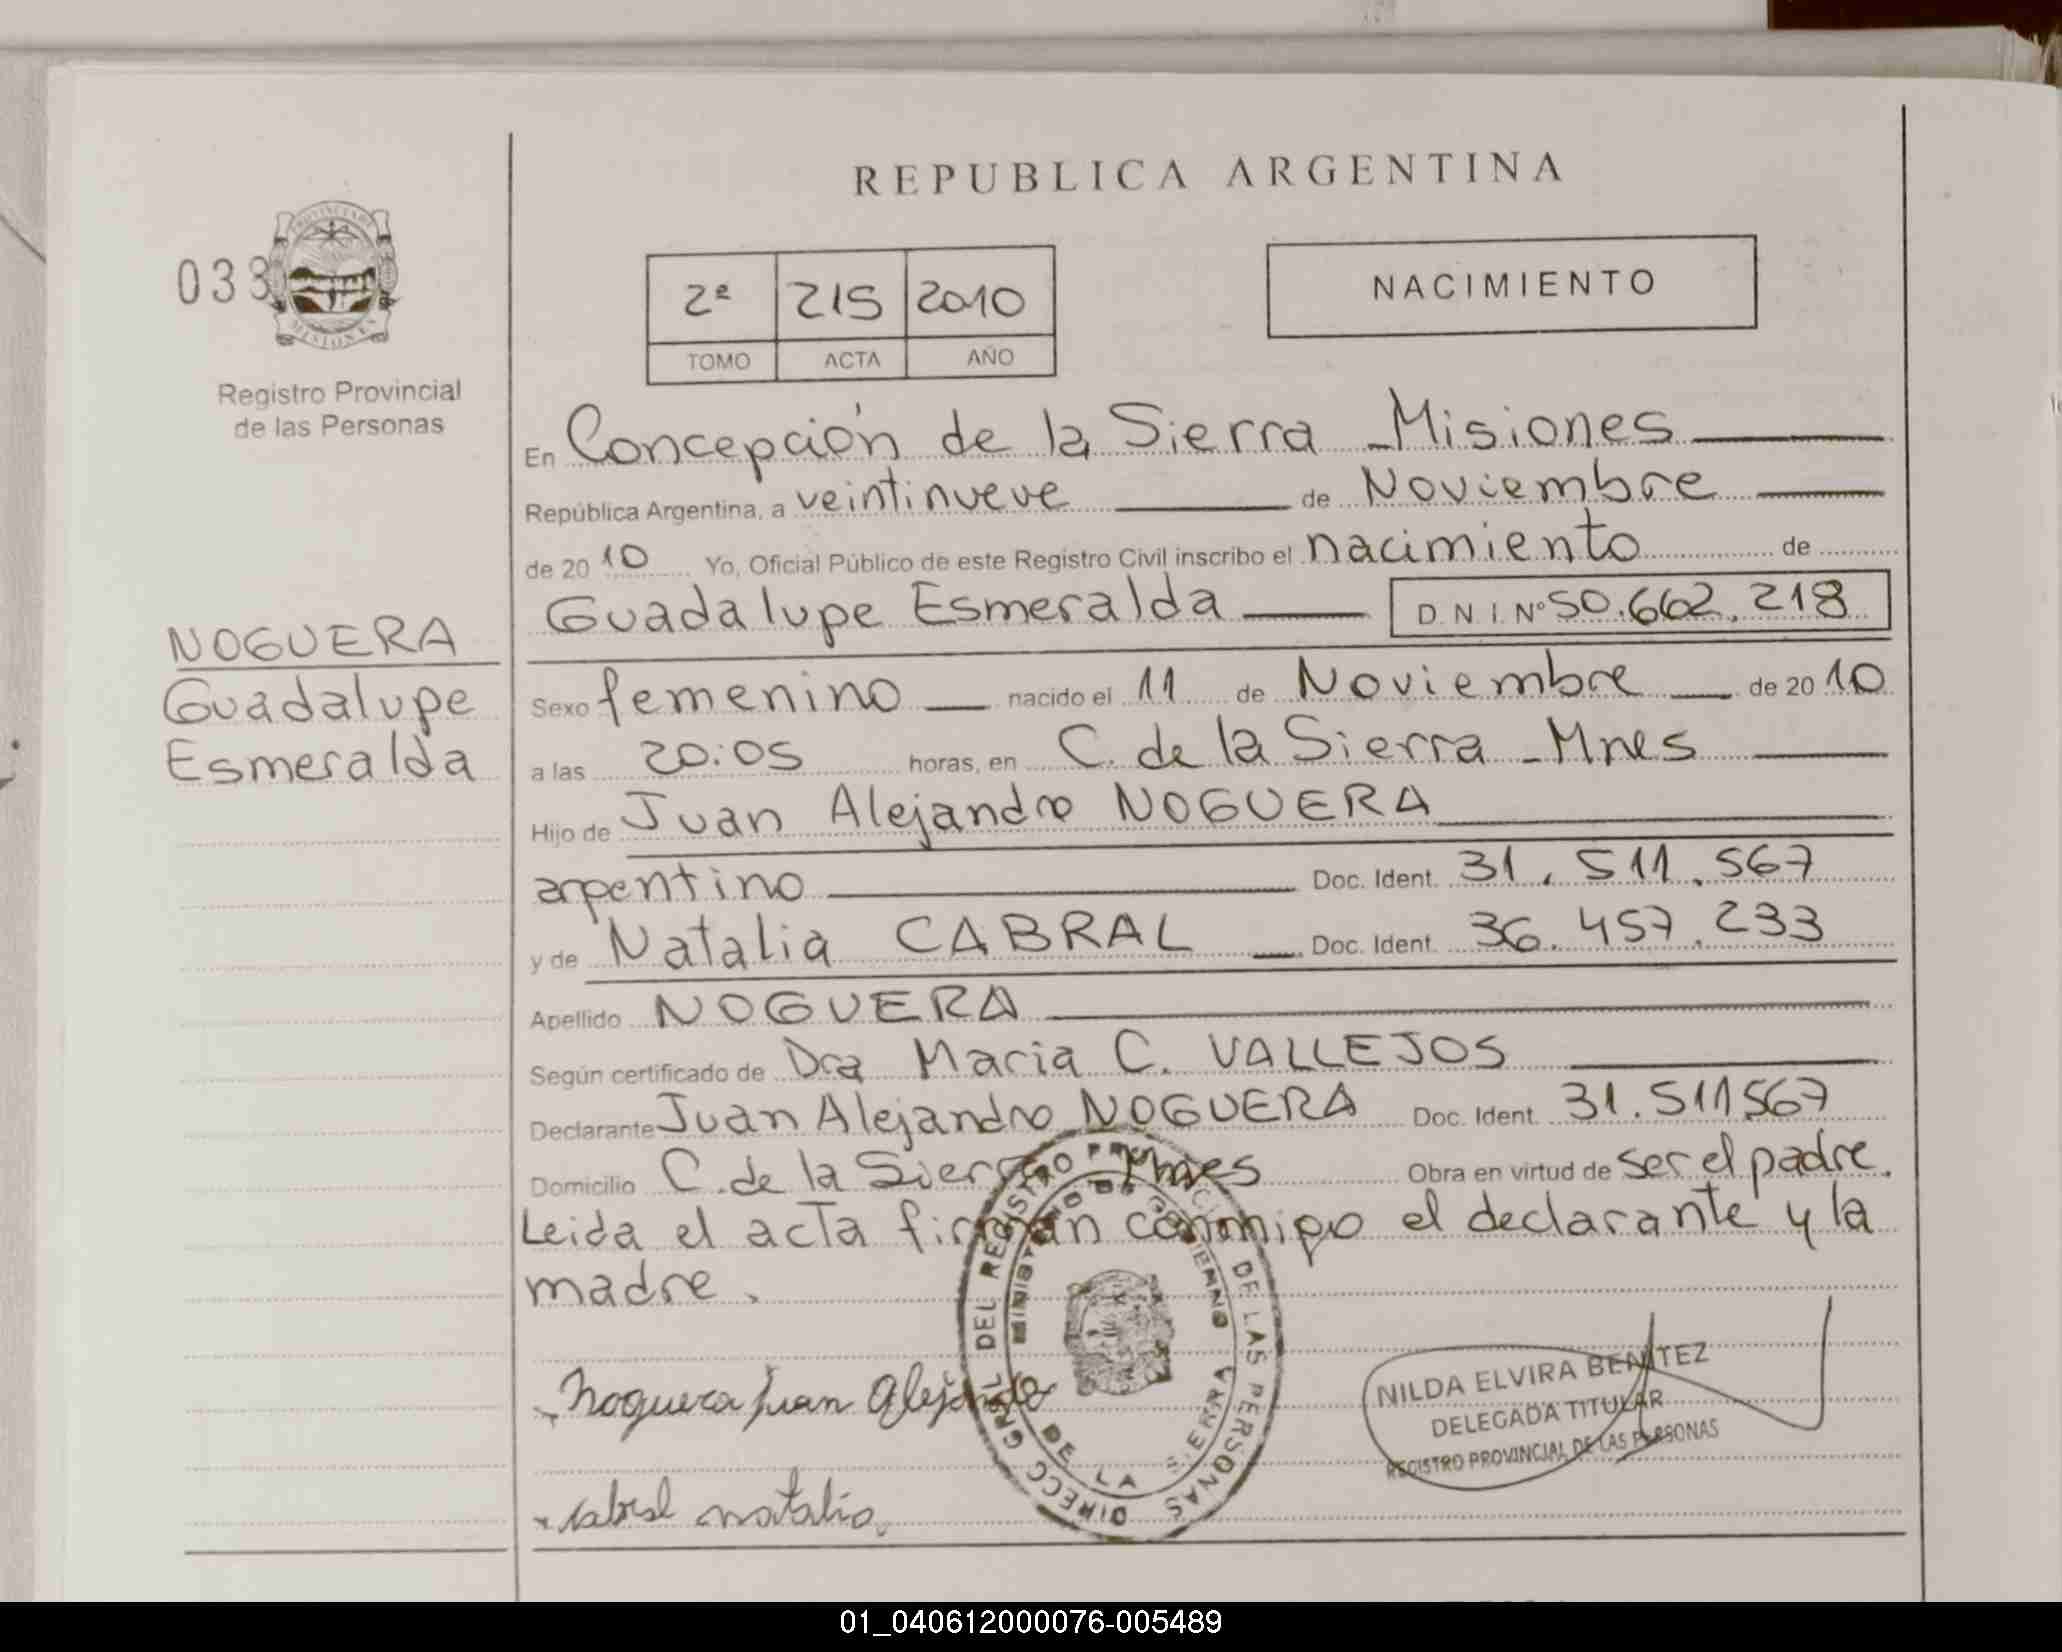 REPUBLICA ARGENTINA
033
PROVINCIA DE
MISIONES
Registro Provincial
de las Personas
2º 215 2010
TOMO ACTA AÑO
NACIMIENTO
En Concepción de la Sierra - Misiones
República Argentina, a veintinueve de Noviembre
de 2010 Yo, Oficial Público de este Registro Civil inscribo el nacimiento de
Guadalupe Esmeralda D.N.I. Nº 50.662.218
NOGUERA
Guadalupe
Esmeralda
Sexo femenino nacido el 11 de Noviembre de 2010
a las 20:05 horas, en C. de la Sierra - Mnes
Hijo de Juan Alejandro NOGUERA
argentino Doc. Ident. 31.511.567
y de Natalia CABRAL Doc. Ident. 36.457.233
Apellido NOGUERA
Según certificado de Dra Maria C. VALLEJOS
Declarante Juan Alejandro NOGUERA Doc. Ident. 31.511567
Domicilio C. de la Sierra - Mnes Obra en virtud de ser el padre.
Leida el acta firman conmigo el declarante y la
madre.
Noguera Juan Alejandro
Cabral natalia
DIRECC. GRAL. DEL REGISTRO DE LAS PERSONAS
MINISTERIO DE GOBIERNO
DE LA SIERRA
NILDA ELVIRA BENITEZ
DELEGADA TITULAR
REGISTRO PROVINCIAL DE LAS PERSONAS
01_040612000076-005489